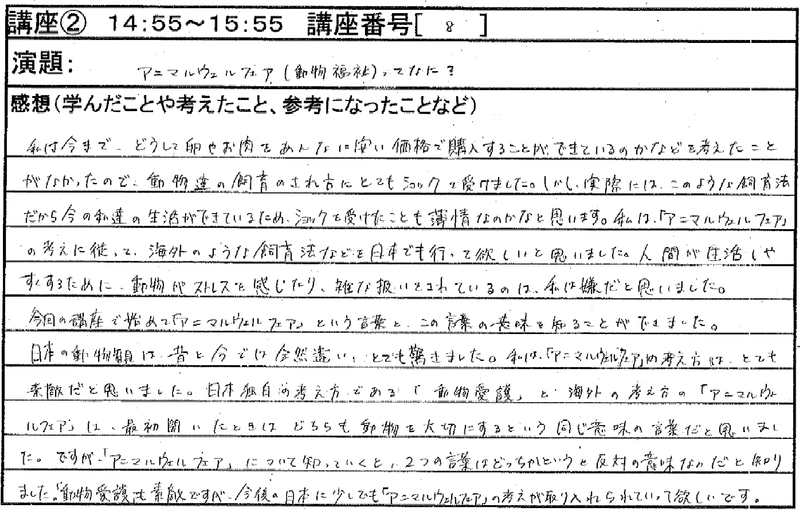 講座② 14:55～15:55 講座番号[ 8 ]
演題: アニマルウェルフェア(動物福祉)ってなに?
感想(学んだことや考えたこと、参考になったことなど)
私は今まで、どうして卵やお肉をあんなに安い価格で購入することができているのかなどを考えたこと
がなかったので、動物達の飼育のされ方にとてもショックを受けました。しかし、実際には、このような飼育法
だから今の私達の生活ができているため、ショックを受けたことも薄情なのかなと思います。私は、「アニマルウェルフェア」
の考えに従って、海外のような飼育法などを日本でも行って欲しいと思いました。人間が生活しや
すくするために、動物がストレスを感じたり、雑な扱いをされているのは、私は嫌だと思いました。
今回の講座で始めて「アニマルウェルフェア」という言葉と、この言葉の意味を知ることができました。
日本の動物観は、昔と今では全然違い、とても驚きました。私は、「アニマルウェルフェア」の考え方は、とても
素敵だと思いました。日本独自の考え方である「動物愛護」と海外の考え方の「アニマルウェ
ルフェア」は、最初聞いたときはどちらも動物を大切にするという同じ意味の言葉だと思いまし
た。ですが、「アニマルウェルフェア」について知っていくと、2つの言葉はどっちかというと反対の意味なんだと知り
ました。「動物愛護」も素敵ですが、今後の日本に少しでも「アニマルウェルフェア」の考えが取り入れられていって欲しいです。